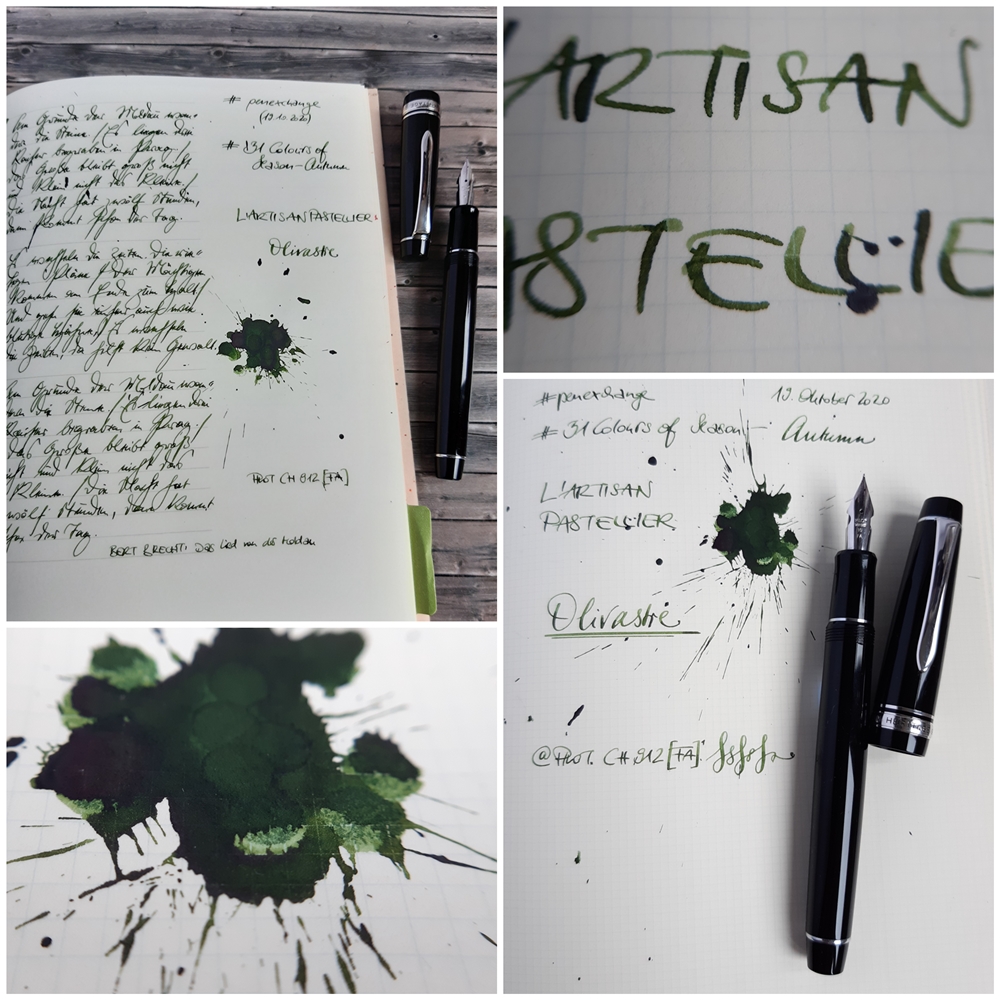 Am Grunde der Moldau wan=
die Steine / Es liegen drei
Kaiser begraben in Prag /
Große bleibt groß nicht
klein nicht das Kleine /
Die Nacht hat zwölf Stunden,
kommt schon der Tag.
Es wechseln die Zeiten Die rie=
Pläne / der Mächtigen
kommen am Ende zum Halt /
Und gehn sie einher auch wie
Hähne / Es wechseln
die Zeiten, da hilft kein Gewalt.
Am Grunde der Moldau wan=
die Steine / Es liegen drei
Kaiser begraben in Prag /
das Große bleibt groß
nicht und klein nicht das
Kleine. / Die Nacht hat
zwölf Stunden, dann kommt
der Tag.
BERT BRECHT: Das Lied von der Moldau
# penexchange
(19.10.2020)
# 31 Colours of
Season - Autumn
L'ARTISAN PASTELLIER
Olivastre
PILOT CH 912 [FA]
ARTISAN
ASTELLIE
# penexchange 19. Oktober 2020
# 31 Colours of Season - Autumn
L'ARTISAN
PASTELLIER
Olivastre
@ PILOT. CH 912 [FA]